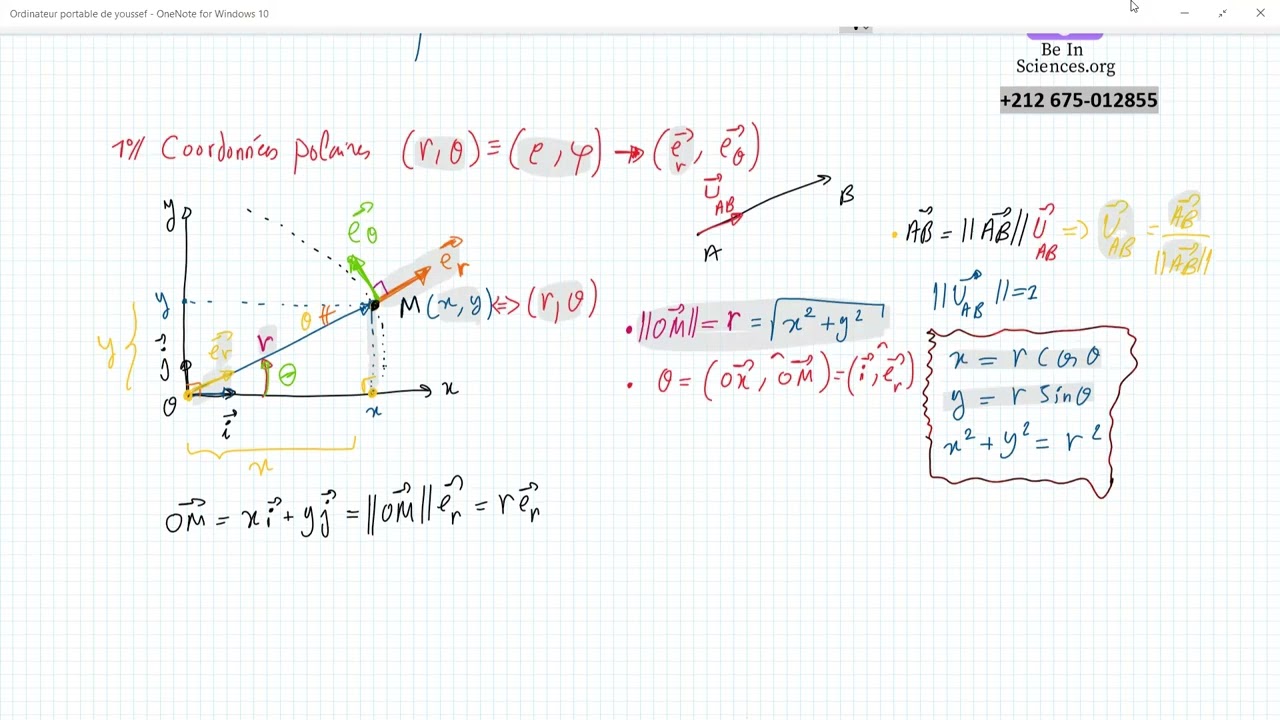 Ordinateur portable de youssef - OneNote for Windows 10
Be In
Sciences.org
+212 675-012855
1°// Coordonnées polaires (r,θ) ≡ (ρ, φ) → (e⃗r, e⃗θ)
U⃗AB
A
B
AB⃗ = ||AB⃗|| U⃗AB ⇒ U⃗AB = AB⃗ / ||AB⃗||
||U⃗AB|| = 1
y
e⃗θ
e⃗r
y
θ #
M(x,y) ⇔ (r,θ)
y
j⃗
e⃗r
r
θ
O
i⃗
x
x
x
• ||OM⃗|| = r = √x² + y²
• θ = (Ox⃗, OM⃗) = (i⃗, e⃗r)
x = r cos θ
y = r sin θ
x² + y² = r²
OM⃗ = x i⃗ + y j⃗ = ||OM⃗|| e⃗r = r e⃗r